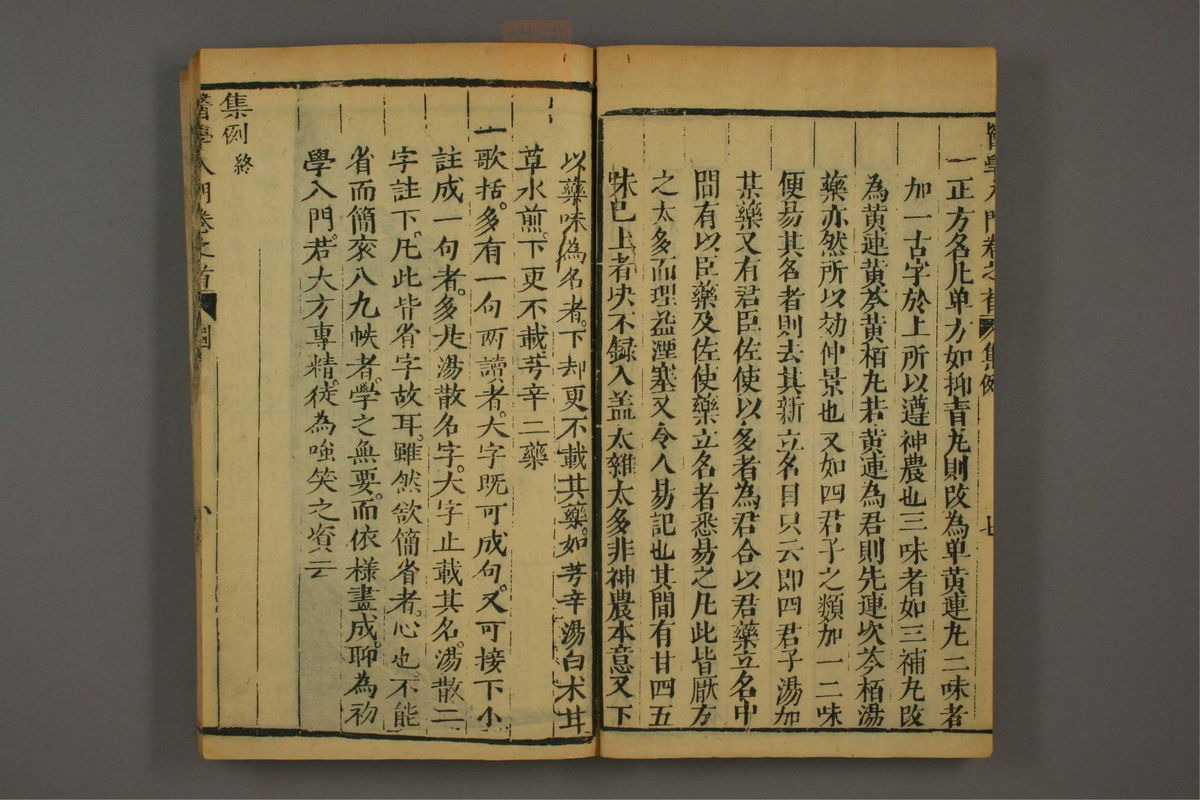 醫學入門卷之首 集例 七
一正方名凢单方如抑青丸則改為单黄連丸二味者
加一古字於上所以遵神農也三味者如三補丸改
為黄連黄芩黄栢丸若黄連為君則先連次芩栢湯
藥亦然所以効仲景也又如四君子之類加一二味
便易其名者則去其新立名目只云即四君子湯加
某藥又有君臣佐使以多者為君合以君藥立名中
間有以臣藥及佐使藥立名者悉易之凢此皆厭方
之太多而理益湮塞又令人易記也其間有甘四五
味巳上者决不録入盖太雜太多非神農本意又下
以藥味為名者下却更不載其藥如芎辛湯白术甘
草水煎下更不載芎辛二藥
一歌括多有一句两讀者大字既可成句又可接下小
註成一句者多是湯散名字大字止載其名湯散二
字註下凢此皆省字故耳雖然欲簡省者心也不能
省而簡衮八九帙者學之無要而依樣畫成聊為初
學入門若大方專精徒為嗤笑之資云
集例終
醫學入門卷之首 八